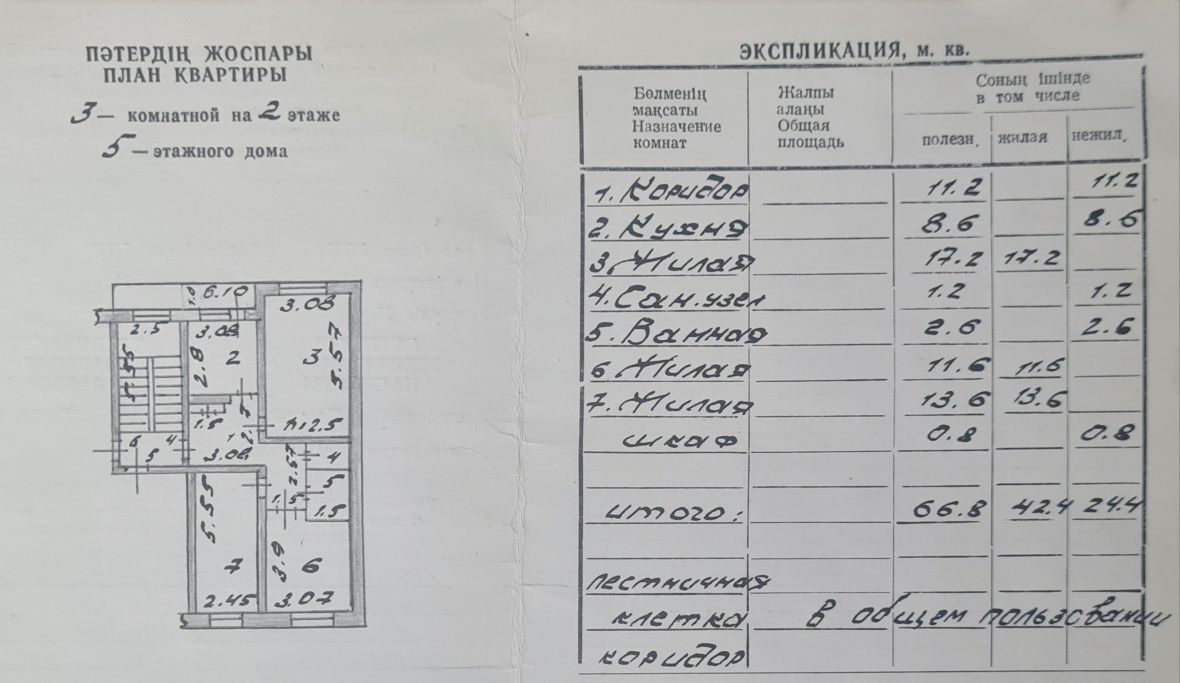 ПӘТЕРДІҢ ЖОСПАРЫ
ПЛАН КВАРТИРЫ
3 — комнатной на 2 этаже
5 — этажного дома
6.10
1.0
2.5
3.08
3.08
2.8
2
3
5.57
5.55
1.5
2.5
h:2.5
6
4
5
1
3.08
2.57
4
5
1.5
1.5
5.55
3.9
7
6
2.45
3.07
ЭКСПЛИКАЦИЯ, м. кв.
Бөлменің мақсаты Назначение комнат
Жалпы алаңы Общая площадь
Соның ішінде
в том числе
полезн. жилая нежил.
1. Коридор 11.2 11.2
2. Кухня 8.6 8.6
3. Жилая 17.2 17.2
4. Сан.узел 1.2 1.2
5. Ванная 2.6 2.6
6 Жилая 11.6 11.6
7. Жилая 13.6 13.6
шкаф 0.8 0.8
итого: 66.8 42.4 24.4
лестничная
клетка в общем пользовании
коридор